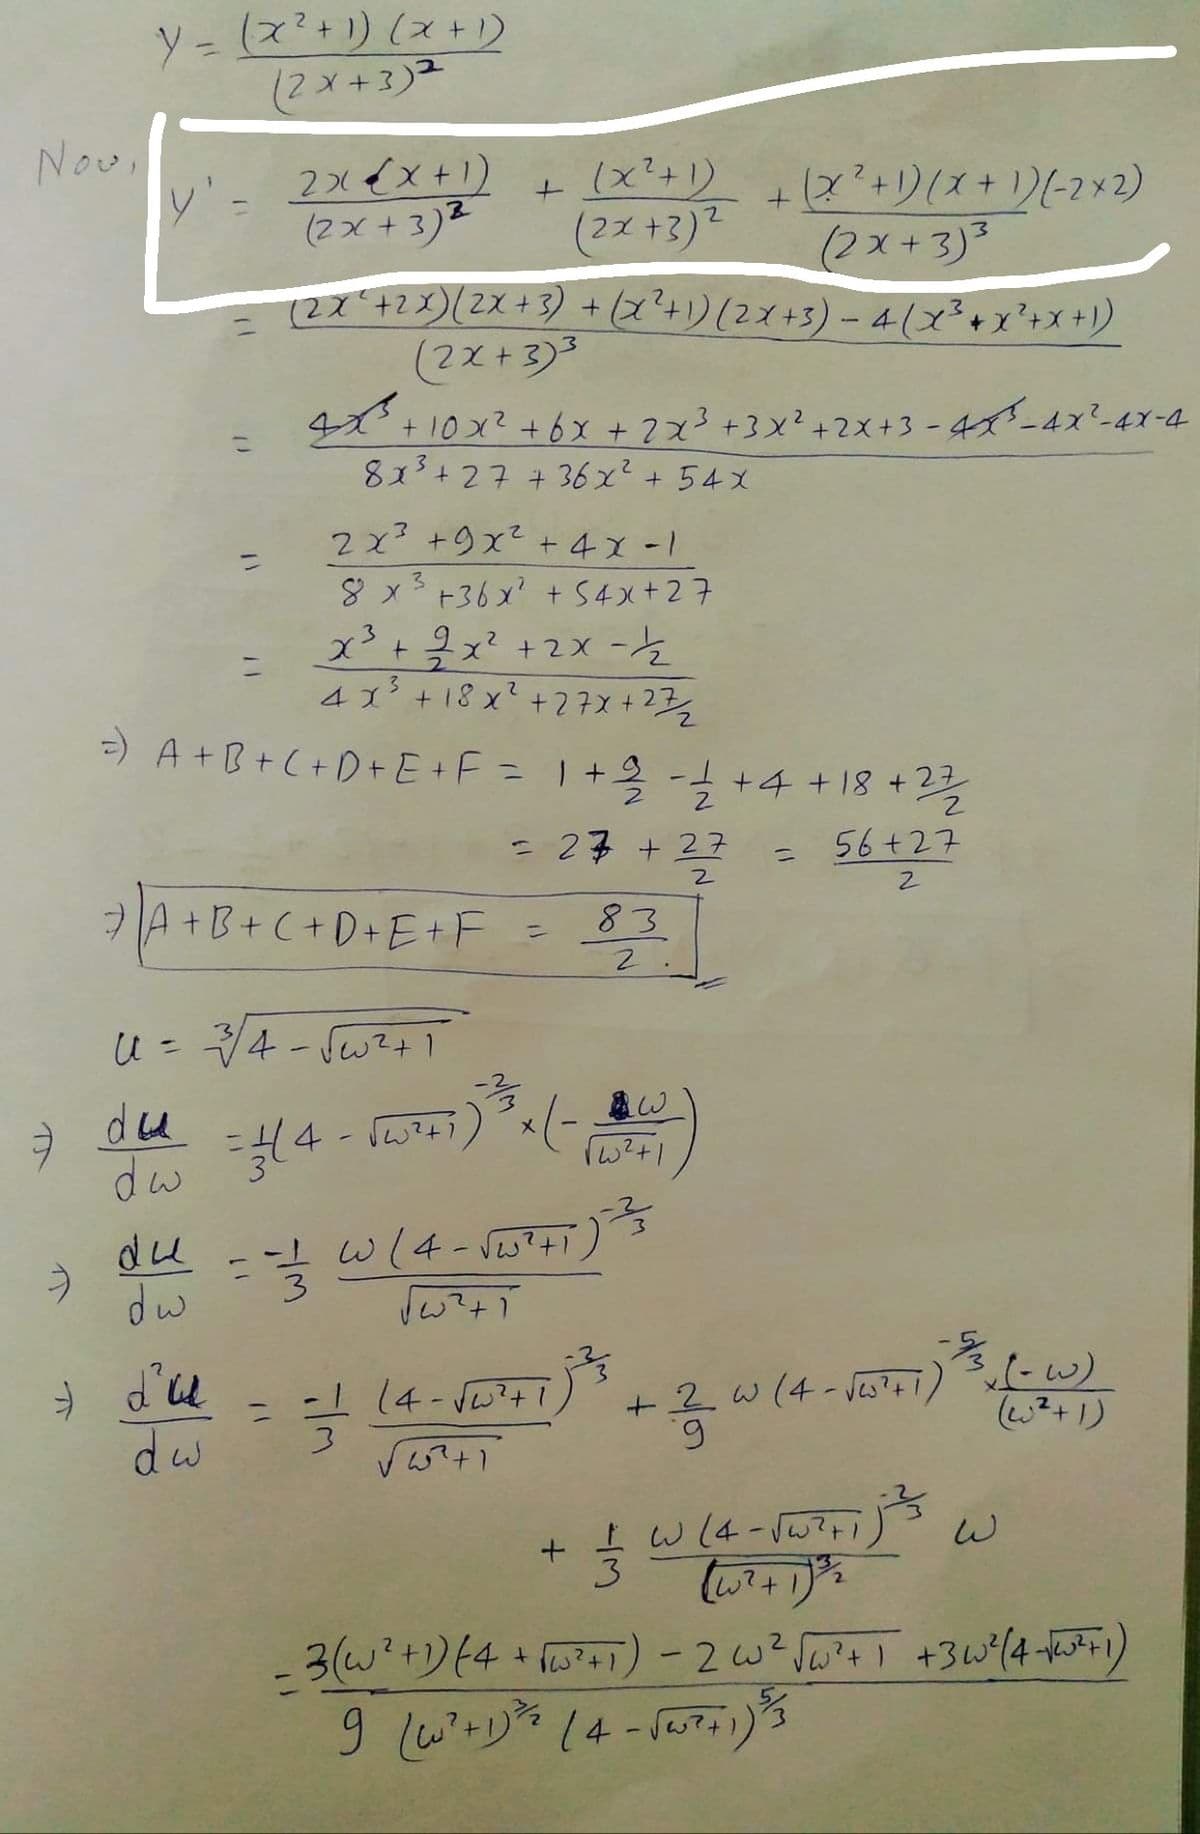 y = (x²+1)(x+1) / (2x+3)²
Now, y' = 2x(x+1) / (2x+3)² + (x²+1) / (2x+3)² + (x²+1)(x+1)(-2×2) / (2x+3)³
= (2x²+2x)(2x+3) + (x²+1)(2x+3) - 4(x³+x²+x+1) / (2x+3)³
= 4x³ + 10x² + 6x + 2x³ + 3x² + 2x + 3 - 4x³ - 4x² - 4x - 4 / 8x³ + 27 + 36x² + 54x
= 2x³ + 9x² + 4x - 1 / 8x³ + 36x² + 54x + 27
= x³ + 9/2 x² + 2x - 1/2 / 4x³ + 18x² + 27x + 27/2
⇒ A+B+C+D+E+F = 1 + 9/2 - 1/2 + 4 + 18 + 27/2
= 27 + 27/2 = 56+27 / 2
⇒ A+B+C+D+E+F = 83/2.
u = ∛(4 - √(ω²+1))
⇒ du/dω = 1/3 (4 - √(ω²+1))^(-2/3) × (- ω/√(ω²+1))
⇒ du/dω = -1/3 ω(4 - √(ω²+1))^(-2/3) / √(ω²+1)
⇒ d²u/dω = -1/3 (4 - √(ω²+1))^(-2/3) / √(ω²+1) + 2/9 ω(4 - √(ω²+1))^(-5/3) × (-ω)/(ω²+1)
+ 1/3 ω(4 - √(ω²+1))^(-2/3) / (ω²+1)^(3/2) ω
= 3(ω²+1)(-4 + √(ω²+1)) - 2ω²√(ω²+1) + 3ω²(4 - √(ω²+1)) / 9(ω²+1)^(3/2) (4 - √(ω²+1))^(5/3)